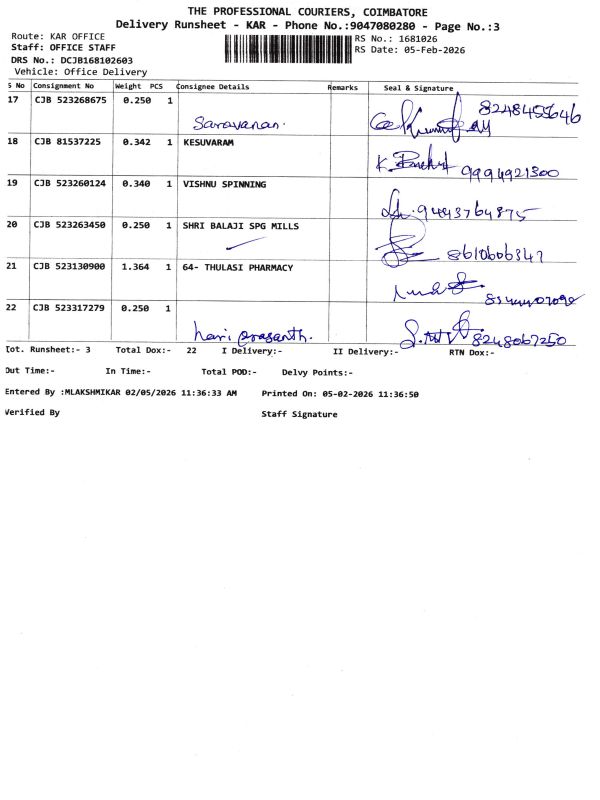 THE PROFESSIONAL COURIERS, COIMBATORE
Delivery Runsheet - KAR - Phone No.:9047080280 - Page No.:3
Route: KAR OFFICE
RS No.: 1681026
Staff: OFFICE STAFF
RS Date: 05-Feb-2026
DRS No.: DCJB168102603
Vehicle: Office Delivery
S No Consignment No Weight PCS Consignee Details Remarks Seal & Signature
17 CJB 523268675 0.250 1 8248455646
Saravanan.
18 CJB 81537225 0.342 1 KESUVARAM
9994921300
19 CJB 523260124 0.340 1 VISHNU SPINNING
9443764875
20 CJB 523263450 0.250 1 SHRI BALAJI SPG MILLS
8610606347
21 CJB 523130900 1.364 1 64- THULASI PHARMACY
22 CJB 523317279 0.250 1
hari prasanth. 8248067250
Tot. Runsheet:- 3 Total Dox:- 22 I Delivery:- II Delivery:- RTN Dox:-
Out Time:- In Time:- Total POD:- Delvy Points:-
Entered By :MLAKSHMIKAR 02/05/2026 11:36:33 AM Printed On: 05-02-2026 11:36:50
Verified By Staff Signature